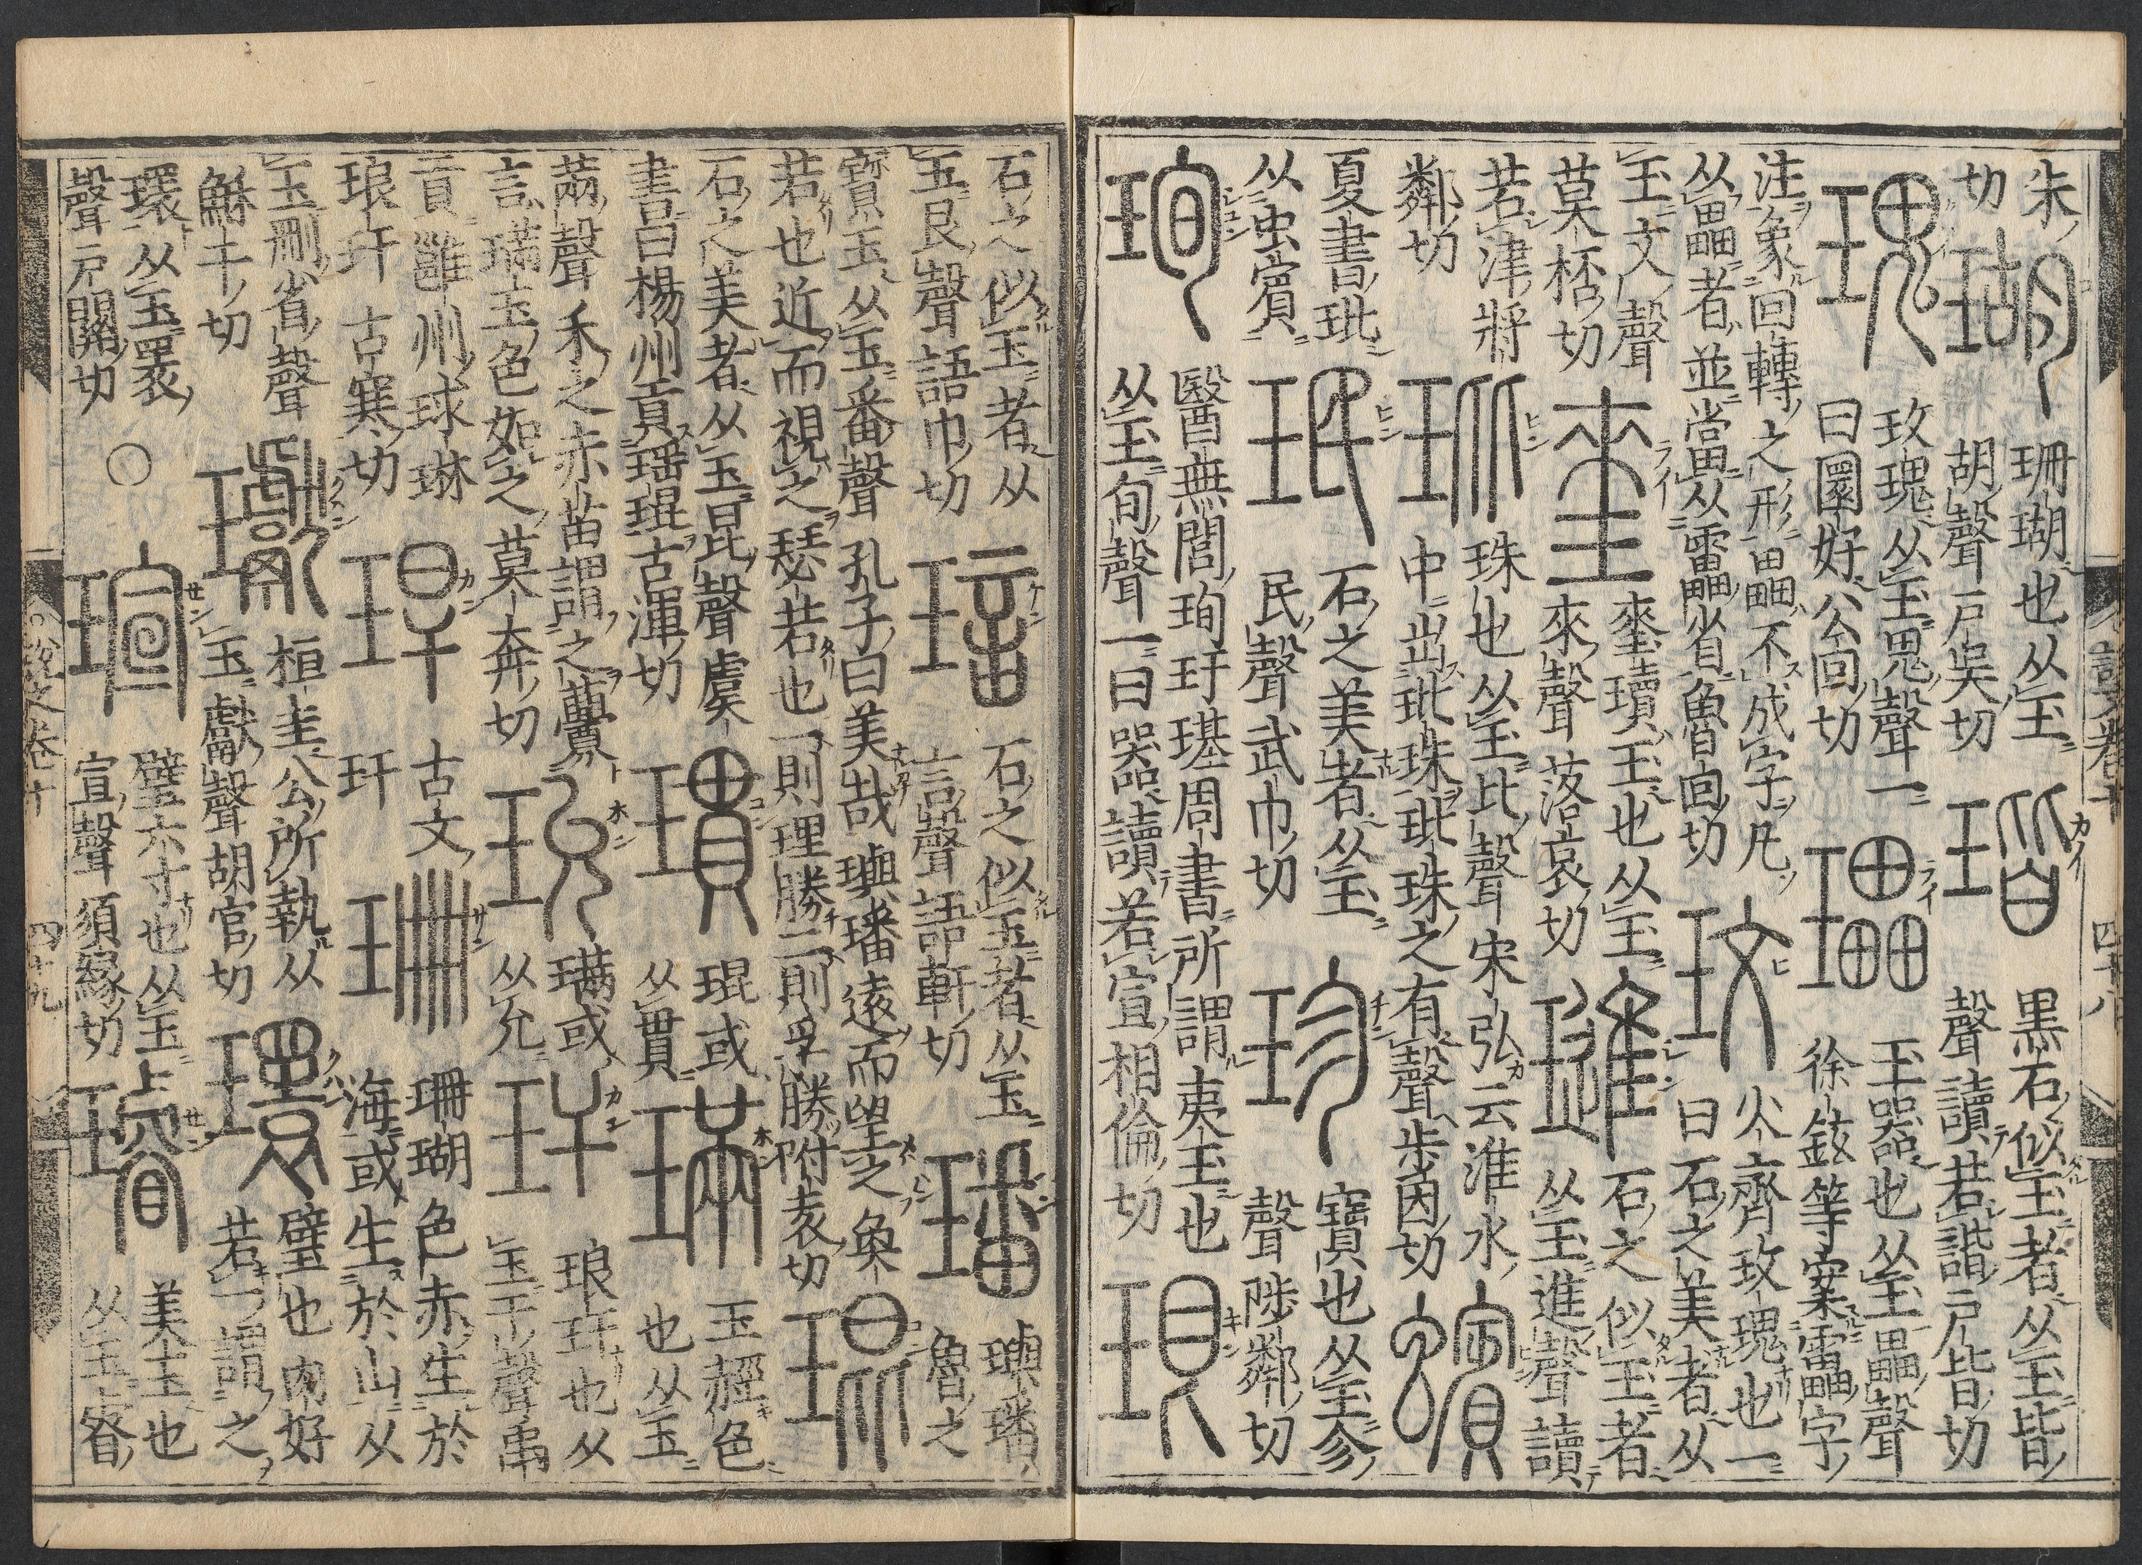 朱
切
瑚
珊瑚也从玉
胡聲戶吳切
瑎
黒石似玉者从玉皆
聲讀若諧戶皆切
瑰
玫瑰从玉鬼聲一
曰圜好公回切
㼍
玉器也从玉畾聲
徐鉉等案靁字
注象回轉之形畾不成字凡
从畾者並當从靁省魯回切
玫
火齊玫瑰也一
曰石之美者从
玉文聲
莫桮切
瓄玉也从玉
來聲落哀切
璡
石之似玉者
从玉進聲讀
若津將
鄰切
玭
珠也从玉比聲宋弘云淮水
中出玭珠玭珠之有聲步因切
蠙
夏書玭
从虫賓
珉
石之美者从玉
民聲武巾切
珍
寶也从玉㐱
聲陟鄰切
珣
醫無閭珣玗璂周書所謂夷玉也
从玉旬聲一曰器讀若宣相倫切
珢
說文卷十 四十八
石之似玉者从
玉艮聲語巾切
琂
石之似玉者从玉
言聲語軒切
璠
璵璠
魯之
寶玉从玉番聲孔子曰美哉璵璠遠而望之奐
若也近而視之瑟若也一則理勝二則孚勝附袁切
琨
石之美者从玉昆聲虞
書曰楊州貢瑶琨古渾切
瑻
琨或
从貫
璊
玉經色
也从玉
㒼聲禾之赤苗謂之虋
言璊玉色如之莫奔切
玧
璊或
从允
玕
琅玕也从
玉干聲禹
貢雝州球琳
琅玕古寒切
古文
玕
珊
珊瑚色赤生於
海或生於山从
玉刪省聲
穌干切
瓛
桓圭公所執从
玉獻聲胡官切
環
璧也肉好
若一謂之
環从玉睘
聲戶関切
○
瑄
璧六寸也从玉
宣聲須緣切
璿
美玉也
从玉睿
說文卷十 四十九